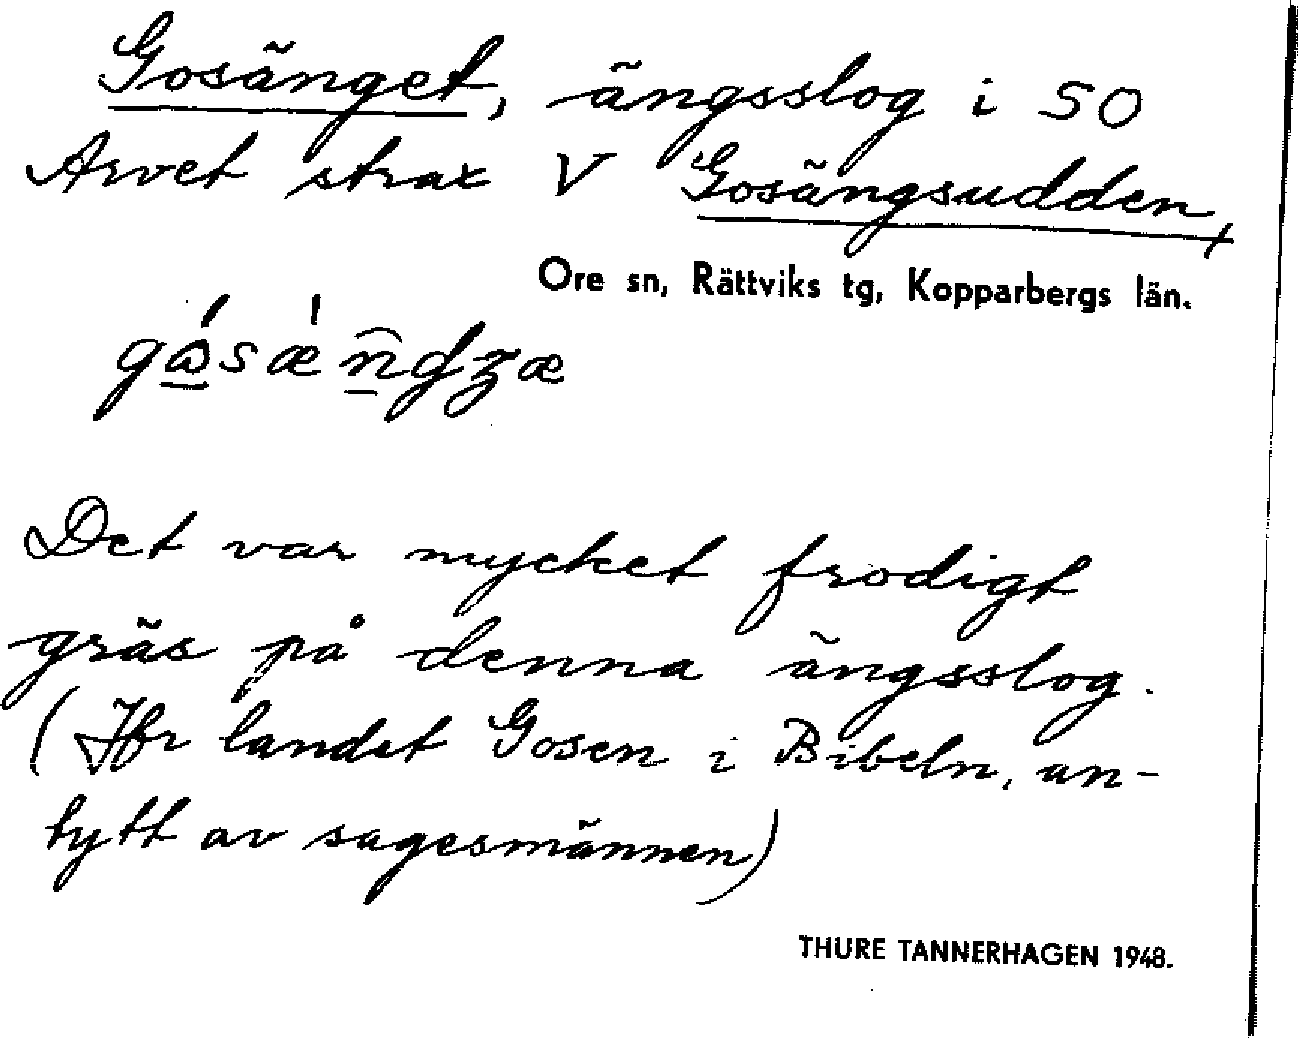 Gosänget, ängsslog i SO
Arvet strax V Gosängsudden,
Ore sn, Rättviks tg, Kopparbergs län.
Det var mycket frodigt
gräs på denna ängsslog.
(Jfr landet Gosen i Bibeln, an-
tytt av sagesmännen)
THURE TANNERHAGEN 1948.